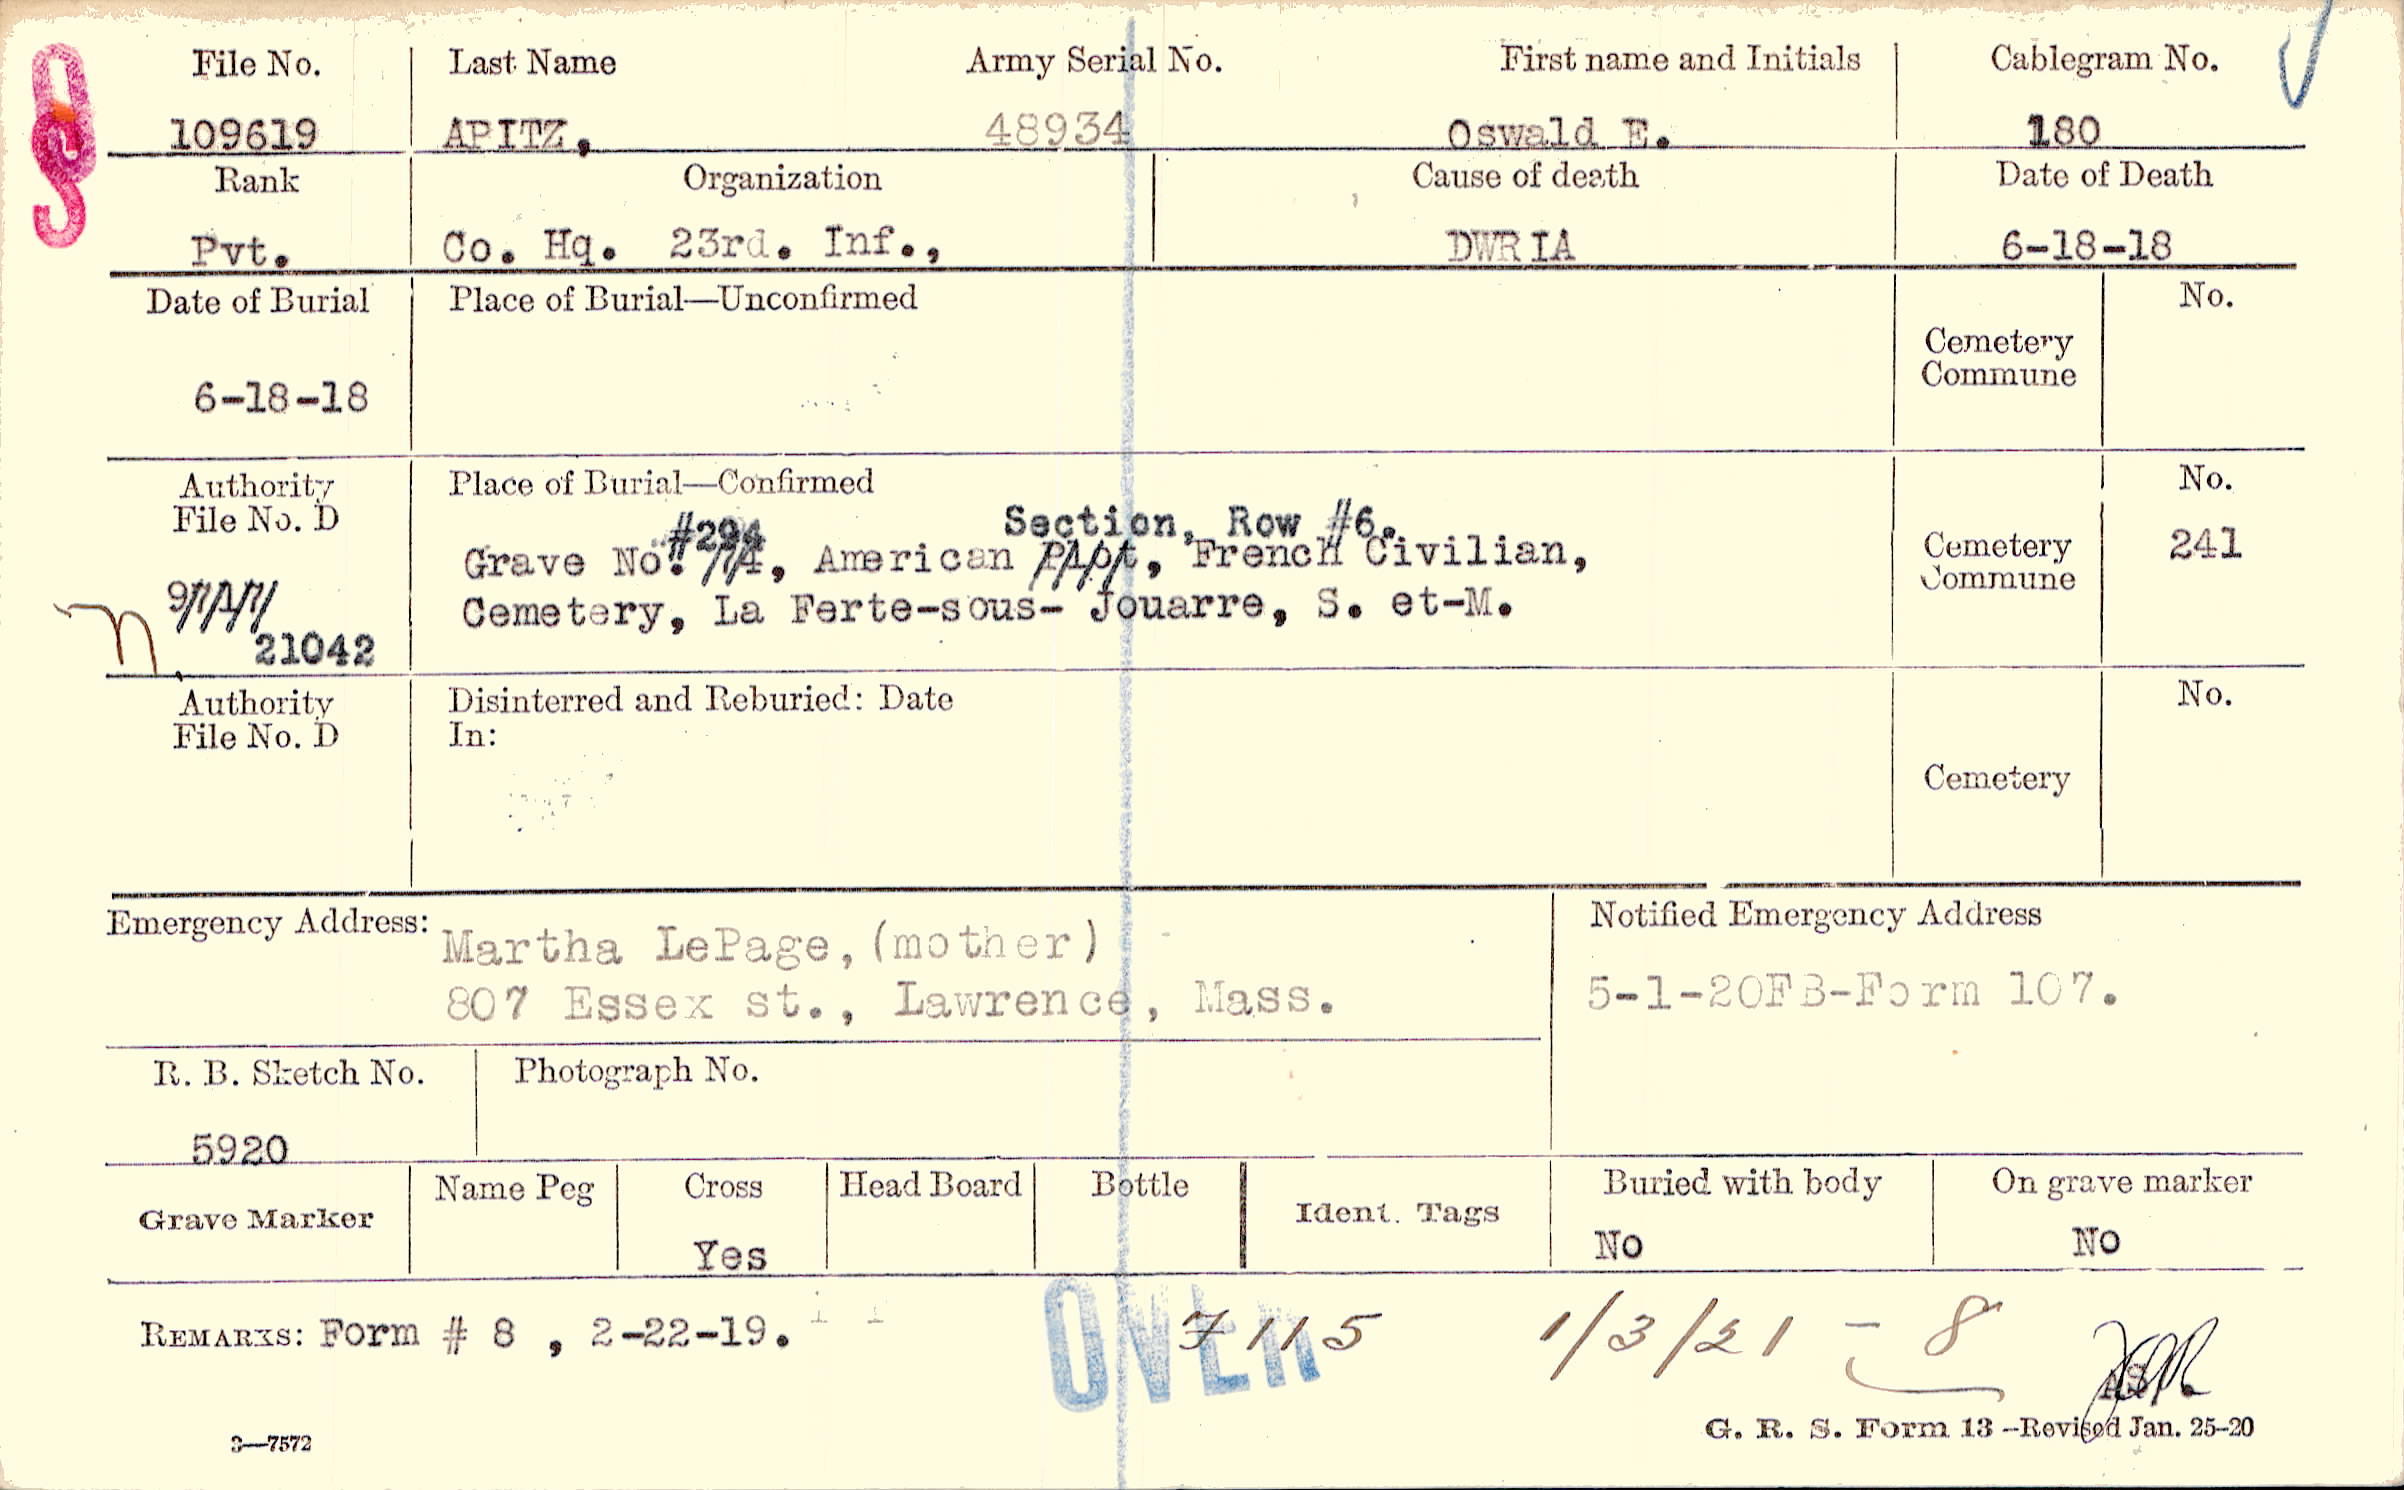 File No. Last Name Army Serial No. First name and Initials Cablegram No.
109619 APITZ, 48934 Oswald E. 180
Rank Organization Cause of death Date of Death
Pvt. Co. Hq. 23rd. Inf., DWRIA 6-18-18
Date of Burial Place of Burial—Unconfirmed No.
Cemetery
Commune
6-18-18
Authority Place of Burial—Confirmed No.
File No. D
#294 Section, Row #6.
Grave No. American French Civilian, Cemetery 241
Commune
Cemetery, La Ferte-sous- Jouarre, S. et-M.
21042
Authority Disinterred and Reburied: Date No.
File No. D In:
Cemetery
Emergency Address: Notified Emergency Address
Martha LePage, (mother)
807 Essex st., Lawrence, Mass. 5-1-20FB-Form 107.
R. B. Sketch No. Photograph No.
5920
Grave Marker Name Peg Cross Head Board Bottle Ident. Tags Buried with body On grave marker
Yes No No
REMARKS: Form # 8 , 2-22-19. OVER 7115 1/3/21 - 8
3—7572 G. R. S. Form 13 -Revised Jan. 25-20